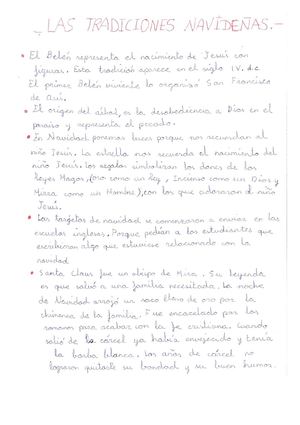 - LAS TRADICIONES NAVIDEÑAS.-
• El Belén representa el nacimiento de Jesús con
figuras. Esta tradición aparece en el siglo IV. d.c
El primer Belén viviente lo organizó San Francisco
de Asis.
• El origen del árbol, es la desobediencia a Dios en el
paraiso y representa el pecado.
• En Navidad ponemos luces porque nos recuerdan al
niño Jesús. La estrella nos recuerda el nacimiento del
niño Jesús. Los regalos simbolizan los dones de los
Reyes Magos, (oro como un Rey, Incienso como un Dios y
Mirra como un Hombre), con los que adoraron al niño
Jesús.
• Las tarjetas de navidad se comenzaron a enviar en las
escuelas inglesas. Porque pedían a los estudiantes que
escribieran algo que estuviese relacionado con la
navidad.
• Santa Claus fue un obispo de Mira. Su leyenda
es que salvó a una familia necesitada. La noche
de Navidad arrojó un saco lleno de oro por la
chimenea de la familia. Fue encarcelado por los
romanos para acabar con la fe cristiana. Cuando
salió de la cárcel ya había envejecido y tenía
la barba blanca. Los años de cárcel no
lograron quitarle su bondad y su buen humor.